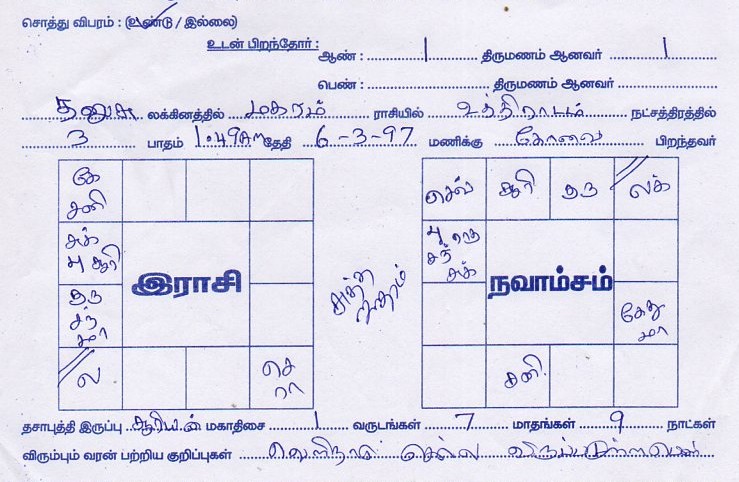 சொத்து விபரம் : (உண்டு / இல்லை)
உடன் பிறந்தோர் : ஆண் : 1 திருமணம் ஆனவர் 1
பெண் : திருமணம் ஆனவர்
தனுசு லக்கினத்தில் மகரம் ராசியில் உத்திராடம் நட்சத்திரத்தில்
3 பாதம் 1.49 தேதி 6-3-97 மணிக்கு கோவை பிறந்தவர்
கே சனி
சுக் பு சூரி
குரு சந் மா
ல
செ ரா
இராசி
சுத்த ஜாதகம்
செவ் சூரி குரு லக்
பு ராகு சந் சுக்
நவாம்சம்
கேது மா
சனி
தசாபுத்தி இருப்பு சூரியன் மகாதிசை 1 வருடங்கள் 7 மாதங்கள் 9 நாட்கள்
விரும்பும் வரன் பற்றிய குறிப்புகள் வெளிநாடு செல்ல விருப்பமுள்ள பெண்